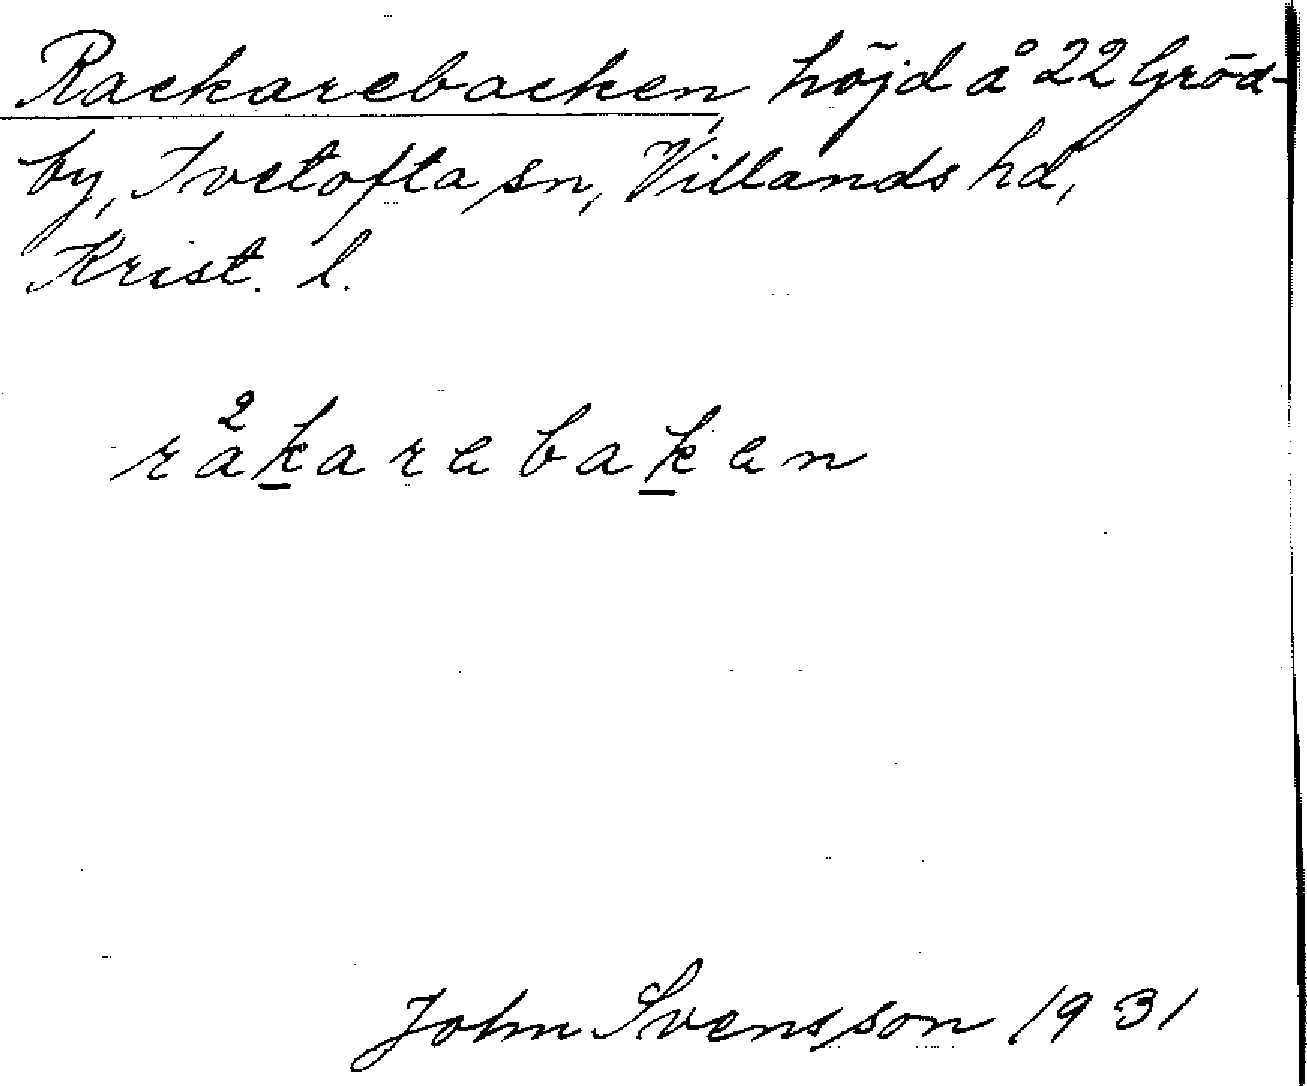 Rackarebacken, höjd å 22 Gröd-
by, Ivetofta sn, Villands hd,
Krist. l.
råkarebaken
John Svensson 1931